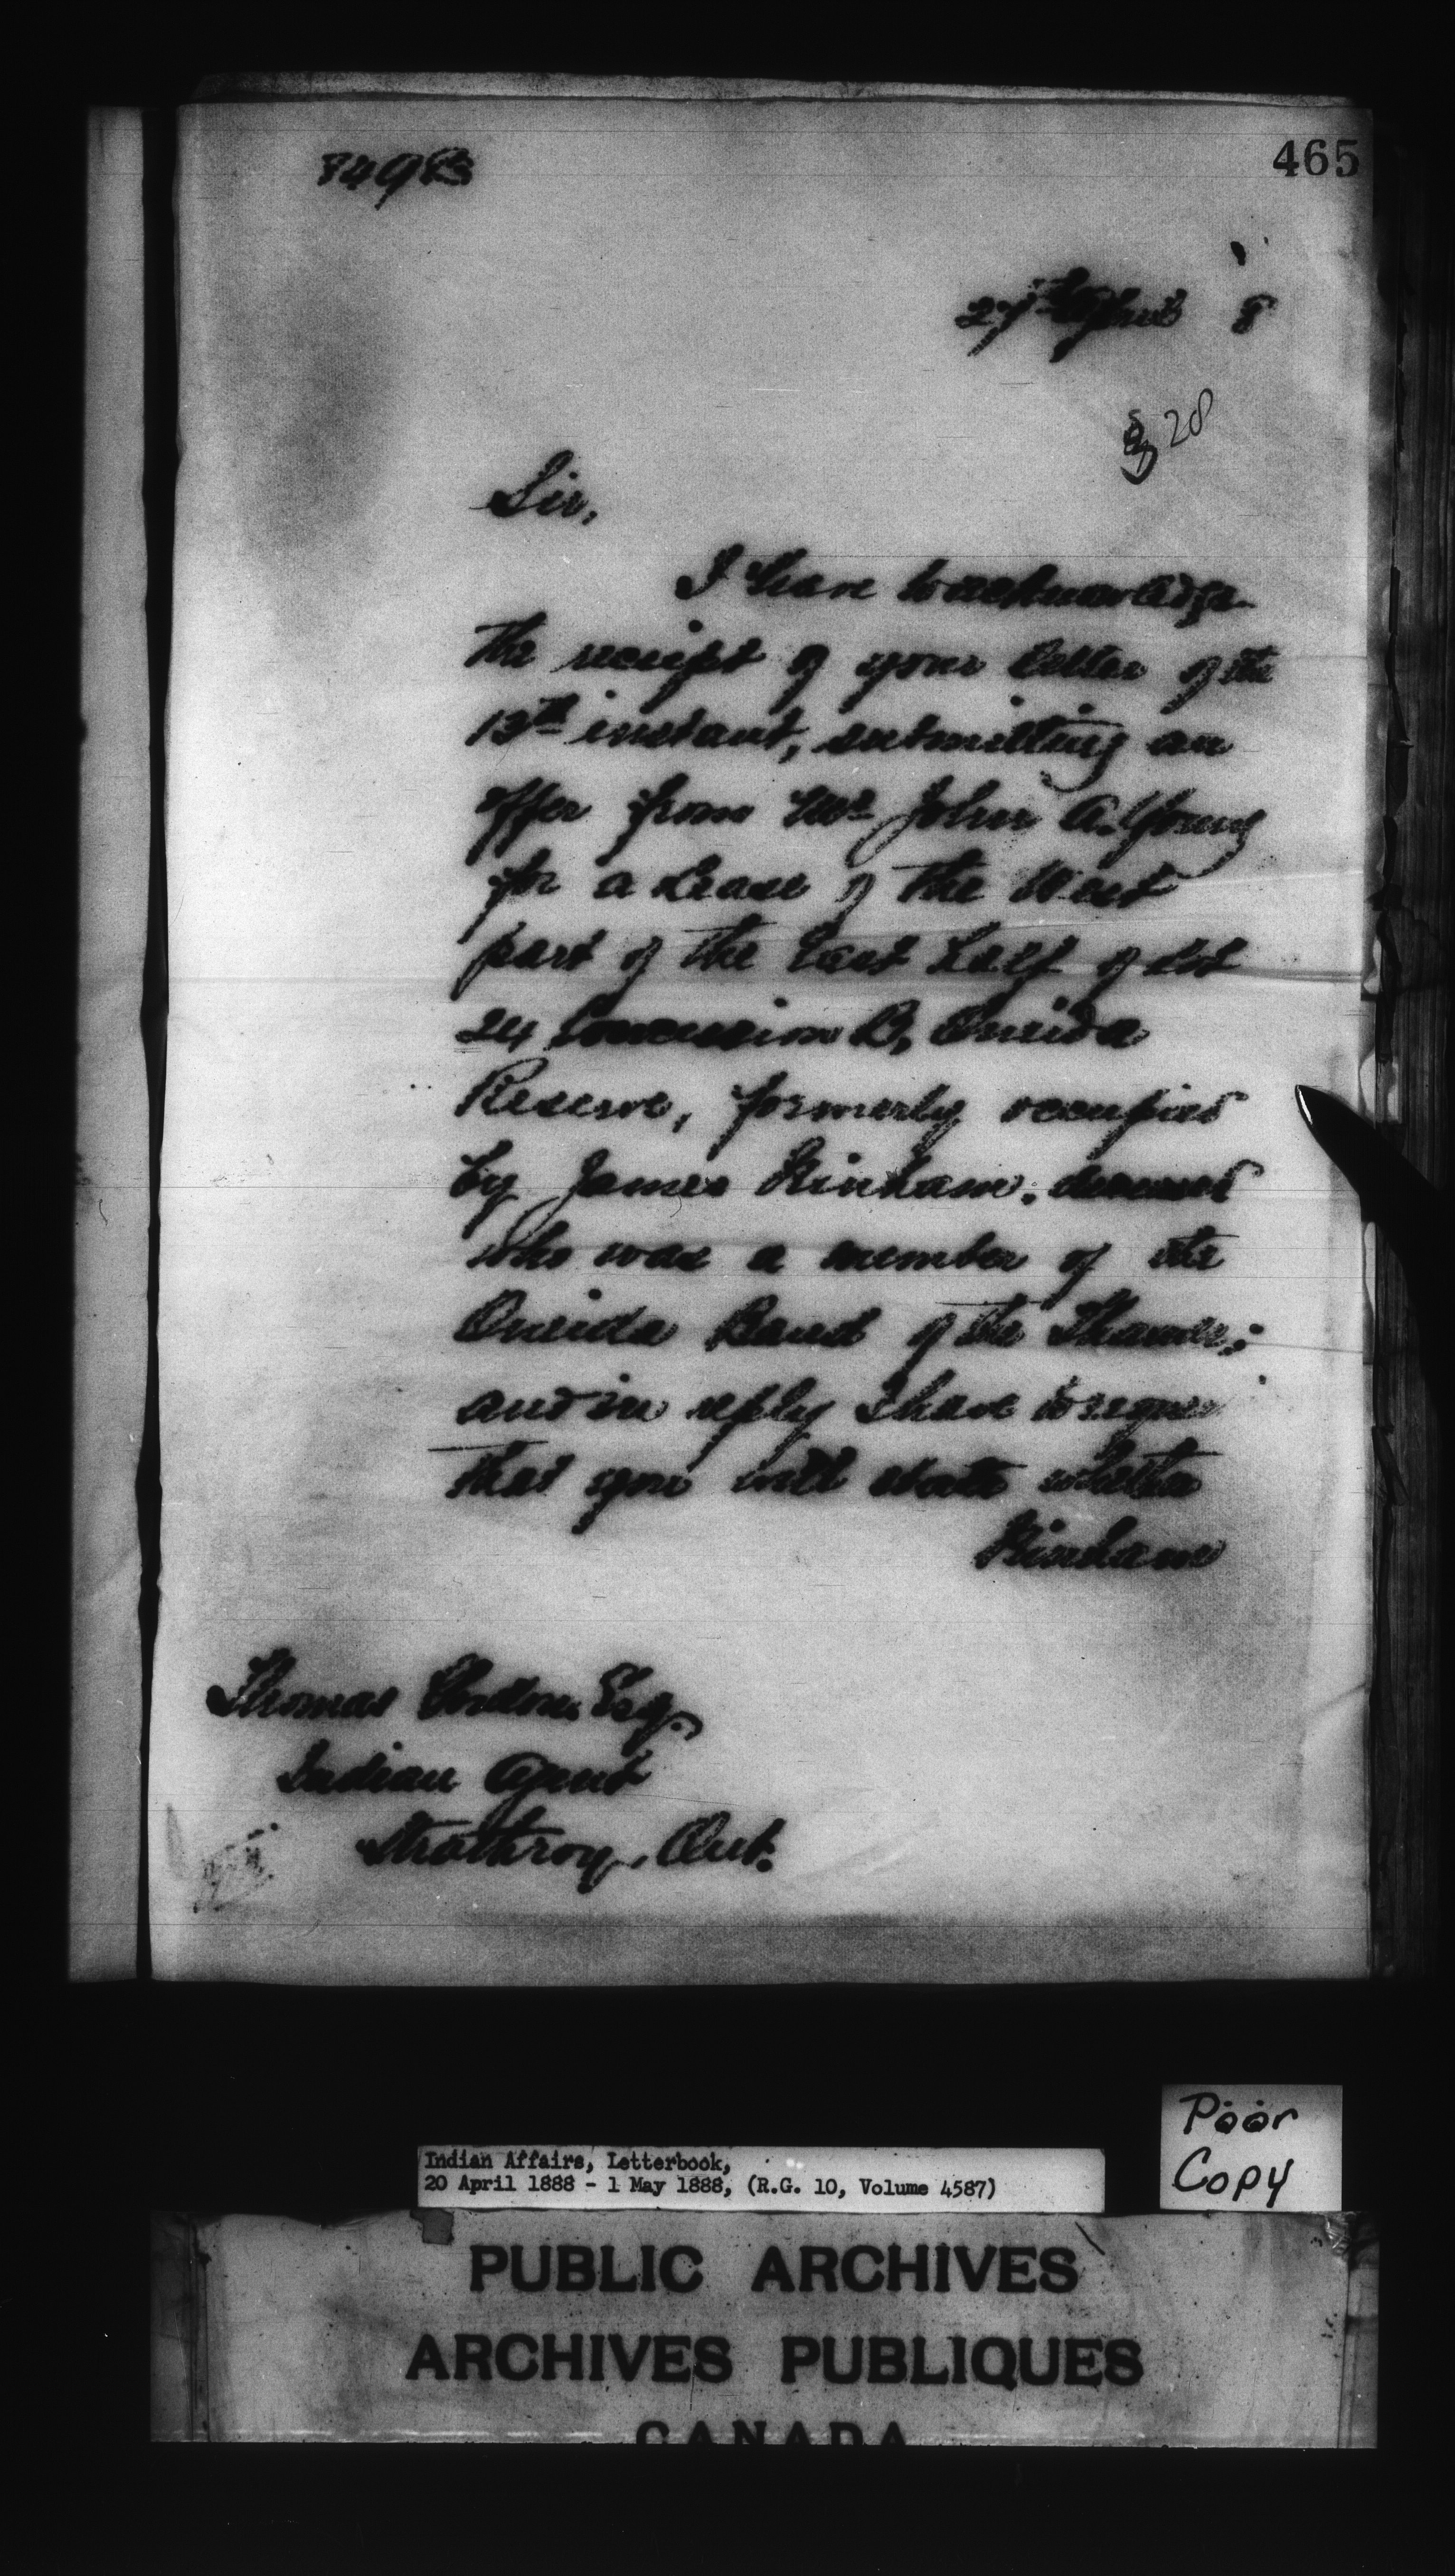 465
27th April 8
28
Sir,
I have to acknowledge
the receipt of your letter of the
13th instant, submitting an
offer from Mr John A. Young
for a Lease of the West
part of the East half of Lot
24 Concession B, Oneida
Reserve, formerly occupied
by James deceased
who was a member of the
Oneida Band of the Thames;
and in reply I have to request
that you will state whether
Thomas Gordon Esq.
Indian Agent
Strathroy, Ont.
Poor
Copy
Indian Affairs, Letterbook,
20 April 1888 - 1 May 1888, (R.G. 10, Volume 4587)
PUBLIC ARCHIVES
ARCHIVES PUBLIQUES
CANADA